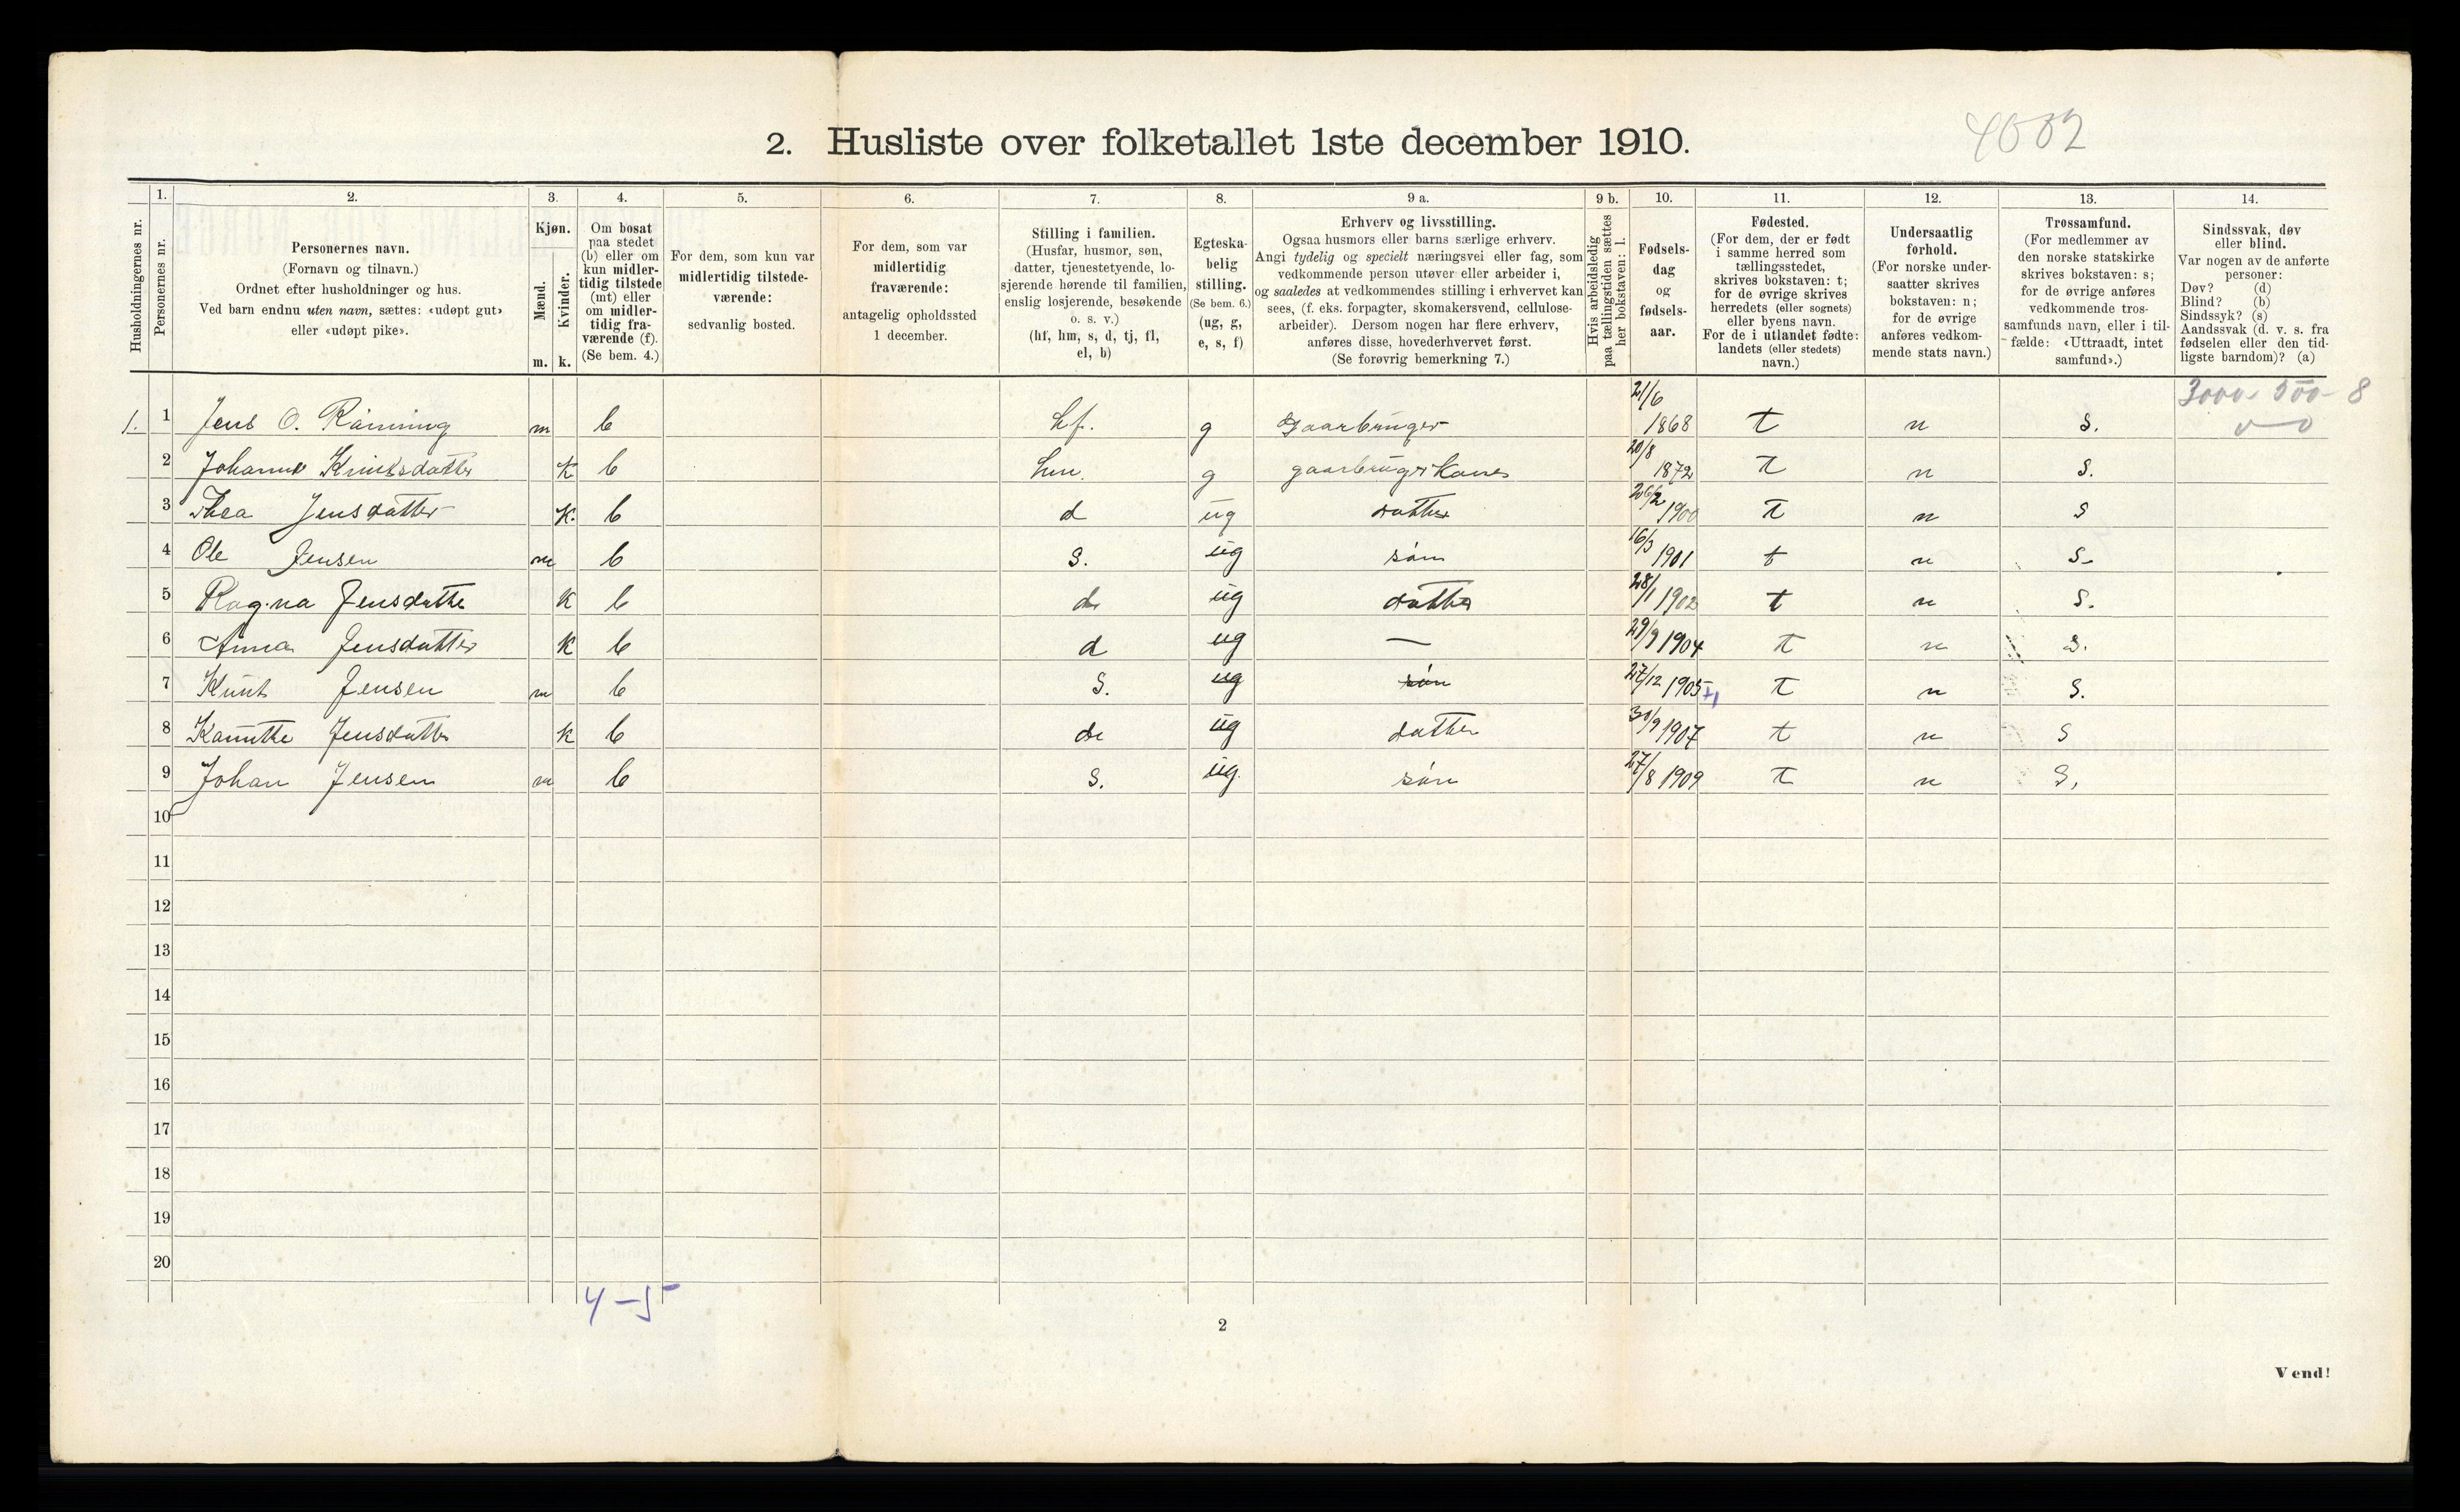 4002
2. Husliste over folketallet 1ste december 1910.
Husholdningernes nr.
1. Personernes nr.
2. Personernes navn. (Fornavn og tilnavn.) Ordnet efter husholdninger og hus. Ved barn endnu uten navn, sættes: «udøpt gut» eller «udøpt pike».
3. Kjøn. Mænd. m. Kvinder. k.
4. Om bosat paa stedet (b) eller om kun midlertidig tilstede (mt) eller om midlertidig fraværende (f). (Se bem. 4.)
5. For dem, som kun var midlertidig tilstedeværende: sedvanlig bosted.
6. For dem, som var midlertidig fraværende: antagelig opholdssted 1 december.
7. Stilling i familien. (Husfar, husmor, søn, datter, tjenestetyende, losjerende hørende til familien, enslig losjerende, besøkende o. s. v.) (hf, hm, s, d, tj, fl, el, b)
8. Egteskabelig stilling. (Se bem. 6.) (ug, g, e, s, f)
9 a. Erhverv og livsstilling. Ogsaa husmors eller barns særlige erhverv. Angi tydelig og specielt næringsvei eller fag, som vedkommende person utøver eller arbeider i, og saaledes at vedkommendes stilling i erhvervet kan sees, (f. eks. forpagter, skomakersvend, cellulosearbeider). Dersom nogen har flere erhverv, anføres disse, hovederhvervet først. (Se forøvrig bemerkning 7.)
9 b. Hvis arbeidsledig paa tællingstiden sættes her bokstaven: l.
10. Fødselsdag og fødselsaar.
11. Fødested. (For dem, der er født i samme herred som tællingsstedet, skrives bokstaven: t; for de øvrige skrives herredets (eller sognets) eller byens navn. For de i utlandet fødte: landets (eller stedets) navn.)
12. Undersaatlig forhold. (For norske undersaatter skrives bokstaven: n; for de øvrige anføres vedkommende stats navn.)
13. Trossamfund. (For medlemmer av den norske statskirke skrives bokstaven: s; for de øvrige anføres vedkommende trossamfunds navn, eller i tilfælde: «Uttraadt, intet samfund».)
14. Sindssvak, døv eller blind. Var nogen av de anførte personer: Døv? (d) Blind? (b) Sindssyk? (s) Aandssvak (d. v. s. fra fødselen eller den tidligste barndom)? (a)
3000 - 500 - 8
1. 1 Jens O. Ränning m b hf. g gaarbruger 21/6 1868 t n s.
2 Johanne Knutsdatter k b hm. g gaarbruger kone 20/8 1872 t n s.
3 Thea Jensdatter k. b d ug datter 26/2 1900 t n s
4 Ole Jensen m b s. ug søn 16/3 1901 t n s.
5 Ragna Jensdatte k b d ug datte 28/1 1902 t n s.
6 Anna Jensdatter k b d ug — 29/9 1904 t n s.
7 Knut Jensen m b s. ug søn 27/12 1905 +1 t n s.
8 Kanutte Jensdatter k b d ug datter 30/9 1907 t n s
9 Johan Jensen m b s. ug. søn 27/8 1909 t n s,
10
11
12
13
14
15
16
17
18
19
20
4 - 5
2
Vend!